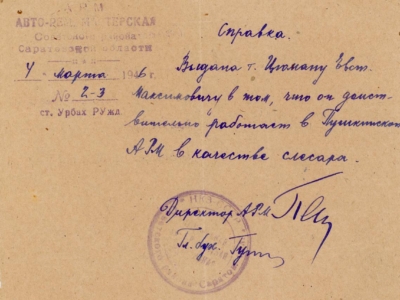 АРМ
АВТО-РЕМ. МАСТЕРСКАЯ
Саратовской области
4 марта 1946
№ 2-3
ст. Урбах РУжд.
Справка.
Выдана т. Цюману Евст.
Максимовичу в том, что он действ
вительно работает в Пушкинской
АРМ в качестве слесаря.
Директор АРМ
Гл. бух.